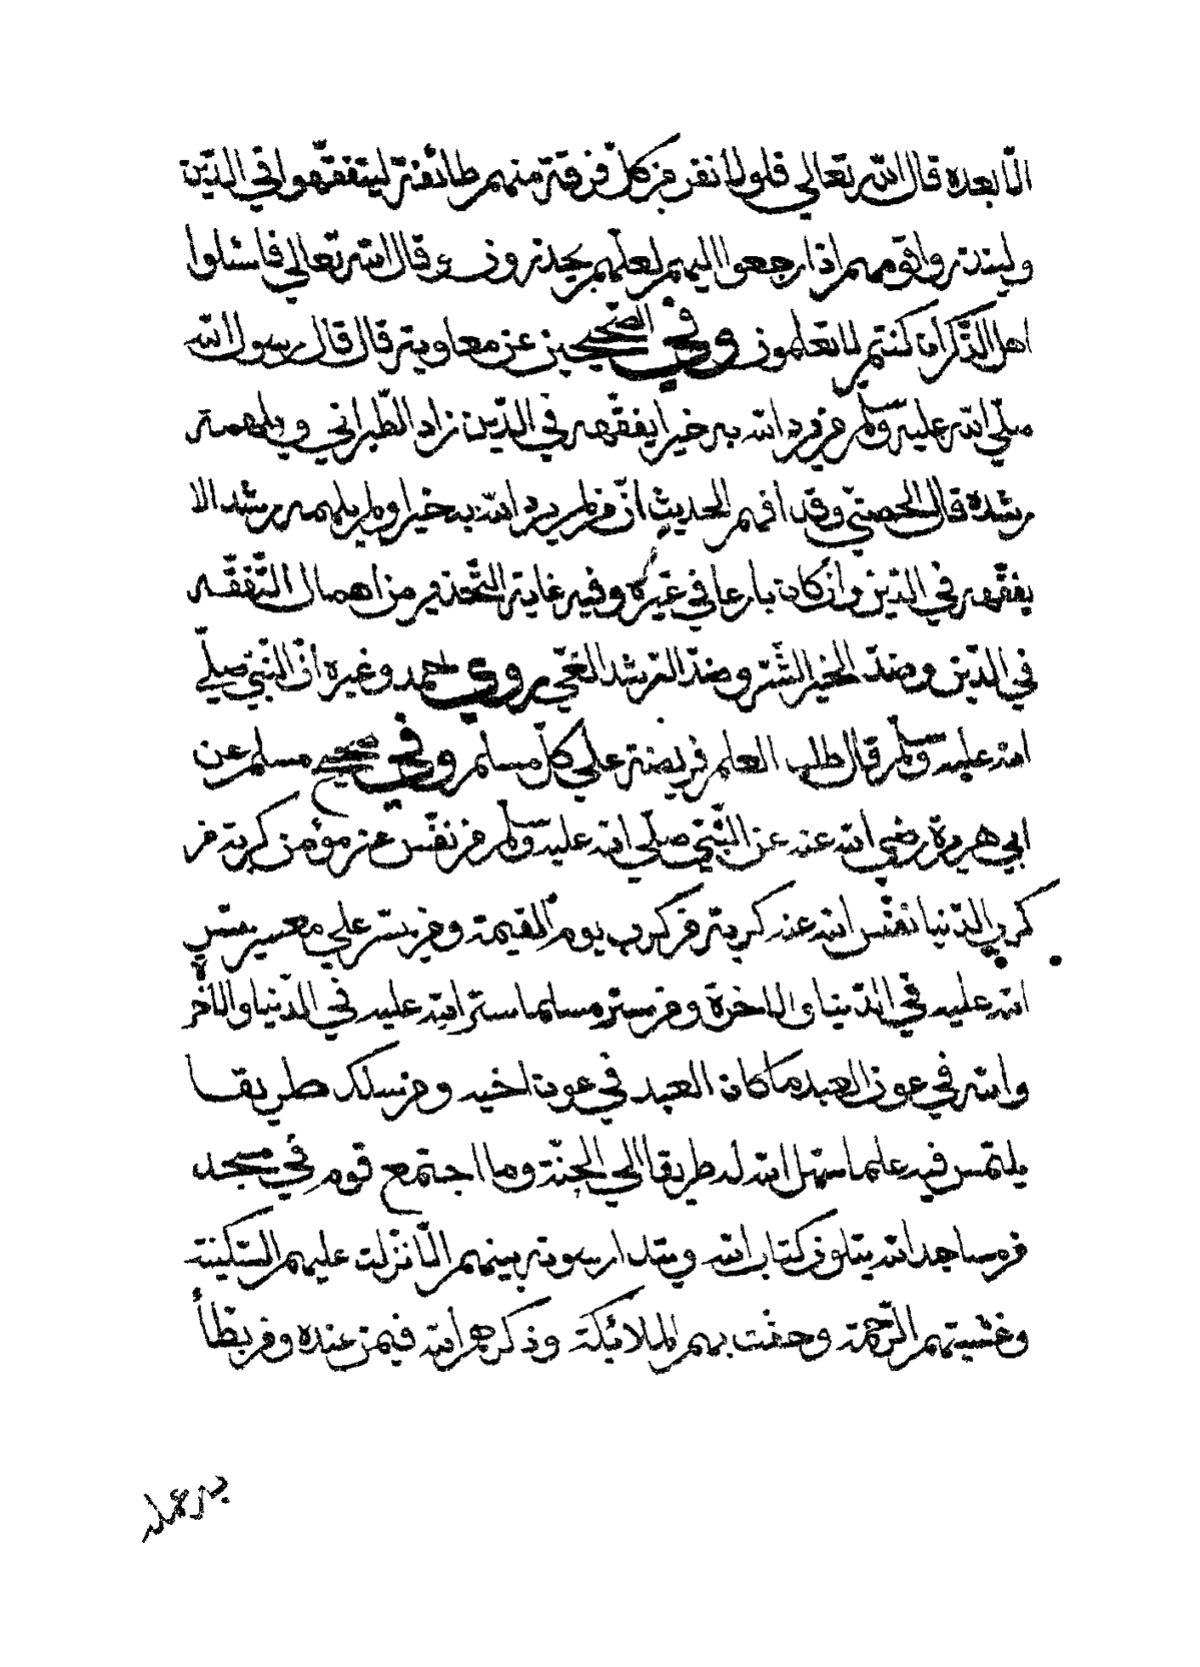 الّا بعده قال الله تعالي فلولا نفر من كلّ فرقة منهم طائفة ليتفقّهوا في الدّين
ولينذروا قومهم اذا رجعوا اليهم لعلّهم يحذرون وقال الله تعالي فاسئلوا
اهل الذّكر ان كنتم لا تعلمون وفي الصّحيحين عن معاوية قال قال رسول الله
صلّي الله عليه وسلم من يرد الله به خيرا يفقّهه في الدّين زاد الطّبراني ويلهمه
رشده قال الحصني وقد افهم الحديث انّ من لم يرد الله به خيرا ولم يلهمه رشد الا
يفقّهه في الدّين وان كان بارعا في غيره وفيه غاية التّحذير من اهمال التّفقّه
في الدّين وضدّ الخير الشّر وضدّ الرشد الغيّ روي احمد وغيره انّ النّبيّ صلّي
الله عليه وسلم قال طلب العلم فريضة علي كلّ مسلم وفي صحيح مسلم عن
ابي هريرة رضي الله عنه عن النّبيّ صلّي الله عليه وسلم من نفّس عن مؤمن كربة من
كرب الدّنيا نفّس الله عنه كربة من كرب يوم القيمة ومن يسّر علي معسر يسّر
الله عليه في الدّنيا والاخرة ومن ستر مسلما ستر الله عليه في الدّنيا والآخرة
والله في عون العبد ما كان العبد في عون اخيه ومن سلك طريقا
يلتمس فيه علما سهّل الله له طريقا الي الجنّة وما اجتمع قوم في مسجد
من مساجد الله يتلون كتاب الله ويتدارسونه بينهم الّا نزلت عليهم السّكينة
وغشيتهم الرّحمة وحفّت بهم الملائكة وذكرهم الله فيمن عنده ومن بطّأ
به عمله